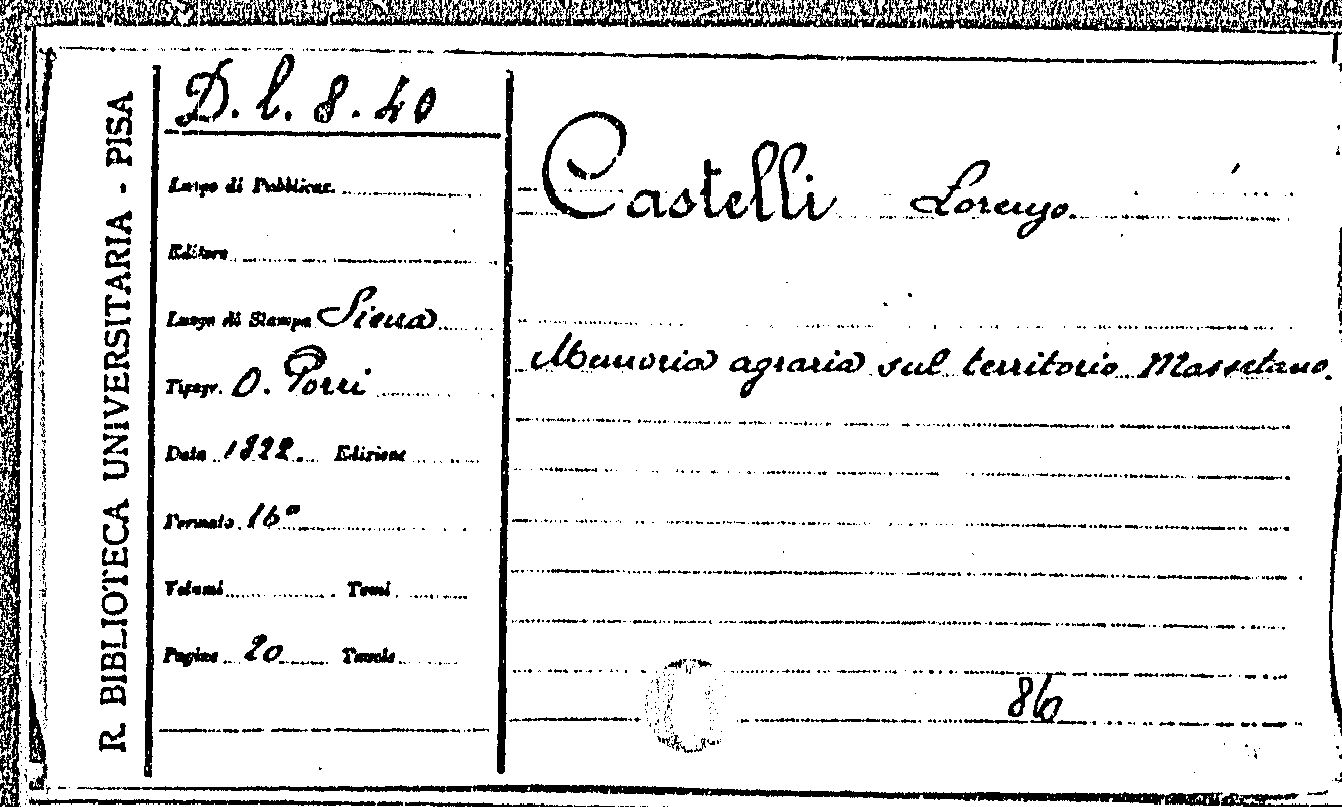 R. BIBLIOTECA UNIVERSITARIA - PISA
D. l. 8. 40
Luogo di Pubblicaz.
Editore
Luogo di Stampa Siena
Tipogr. O. Porri
Data 1822. Edizione
Formato 16°
Volumi Tomi
Pagine 20 Tavole
Castelli Lorenzo.
Memoria agraria sul territorio Massetano.
86